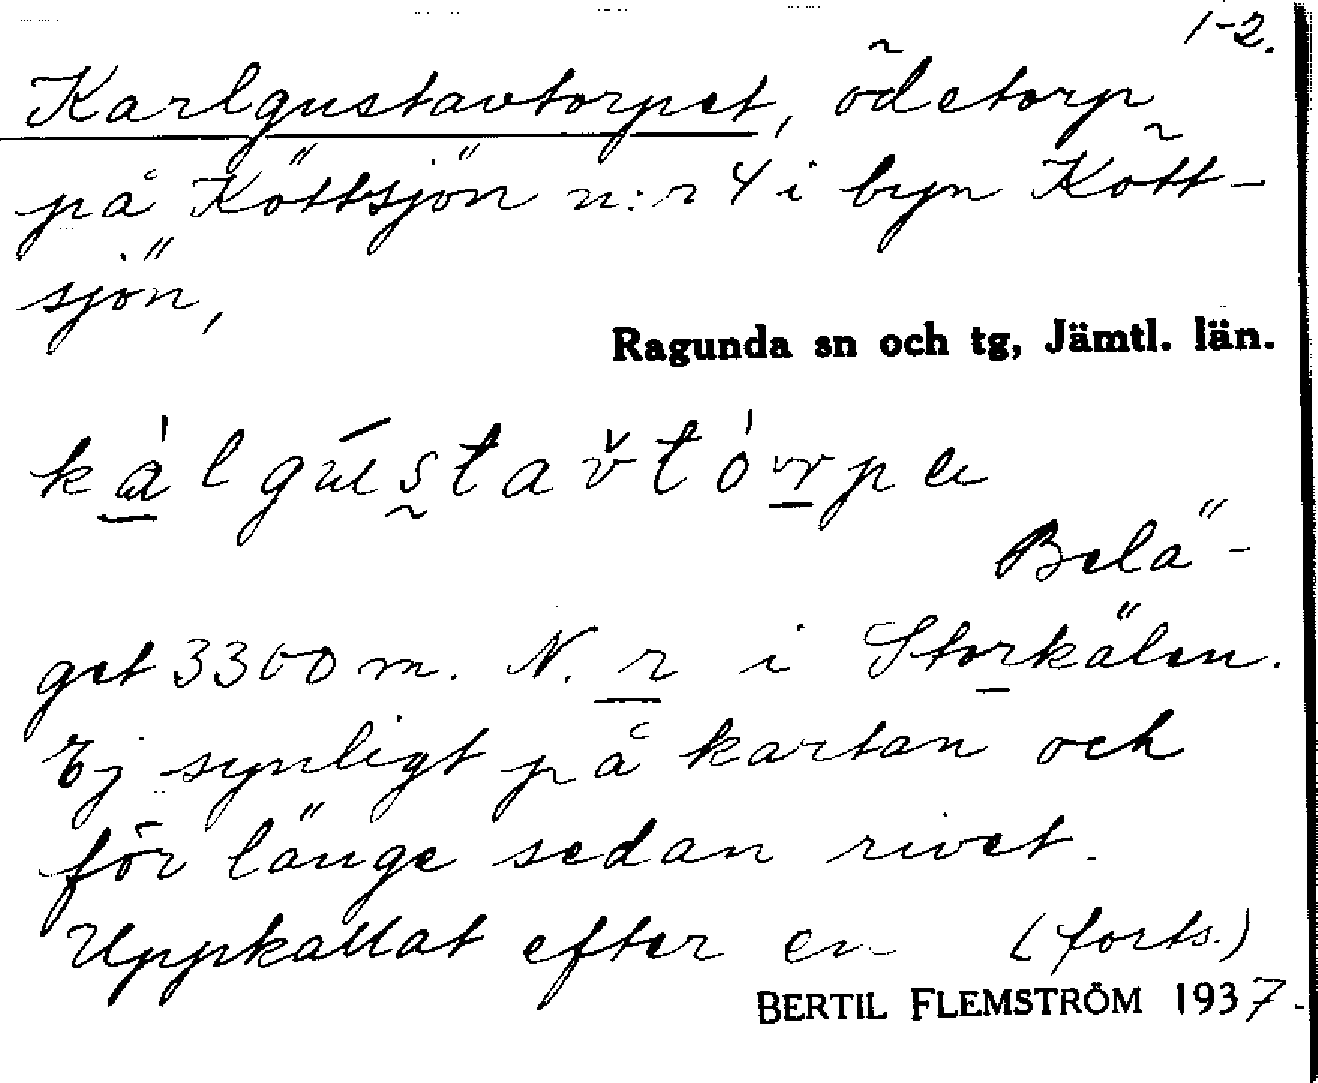 1-2.
Karlgustavtorpet, ödetorp
på Köttsjön n:r 4 i byn Kött-
sjön,
Ragunda sn och tg, Jämtl. län.
kálgústav̌tórpe
Belä-
get 3300 m. N. r i Storkälen.
Ej synligt på kartan och
för länge sedan rivet.
Uppkallat efter en (forts.)
BERTIL FLEMSTRÖM 1937.